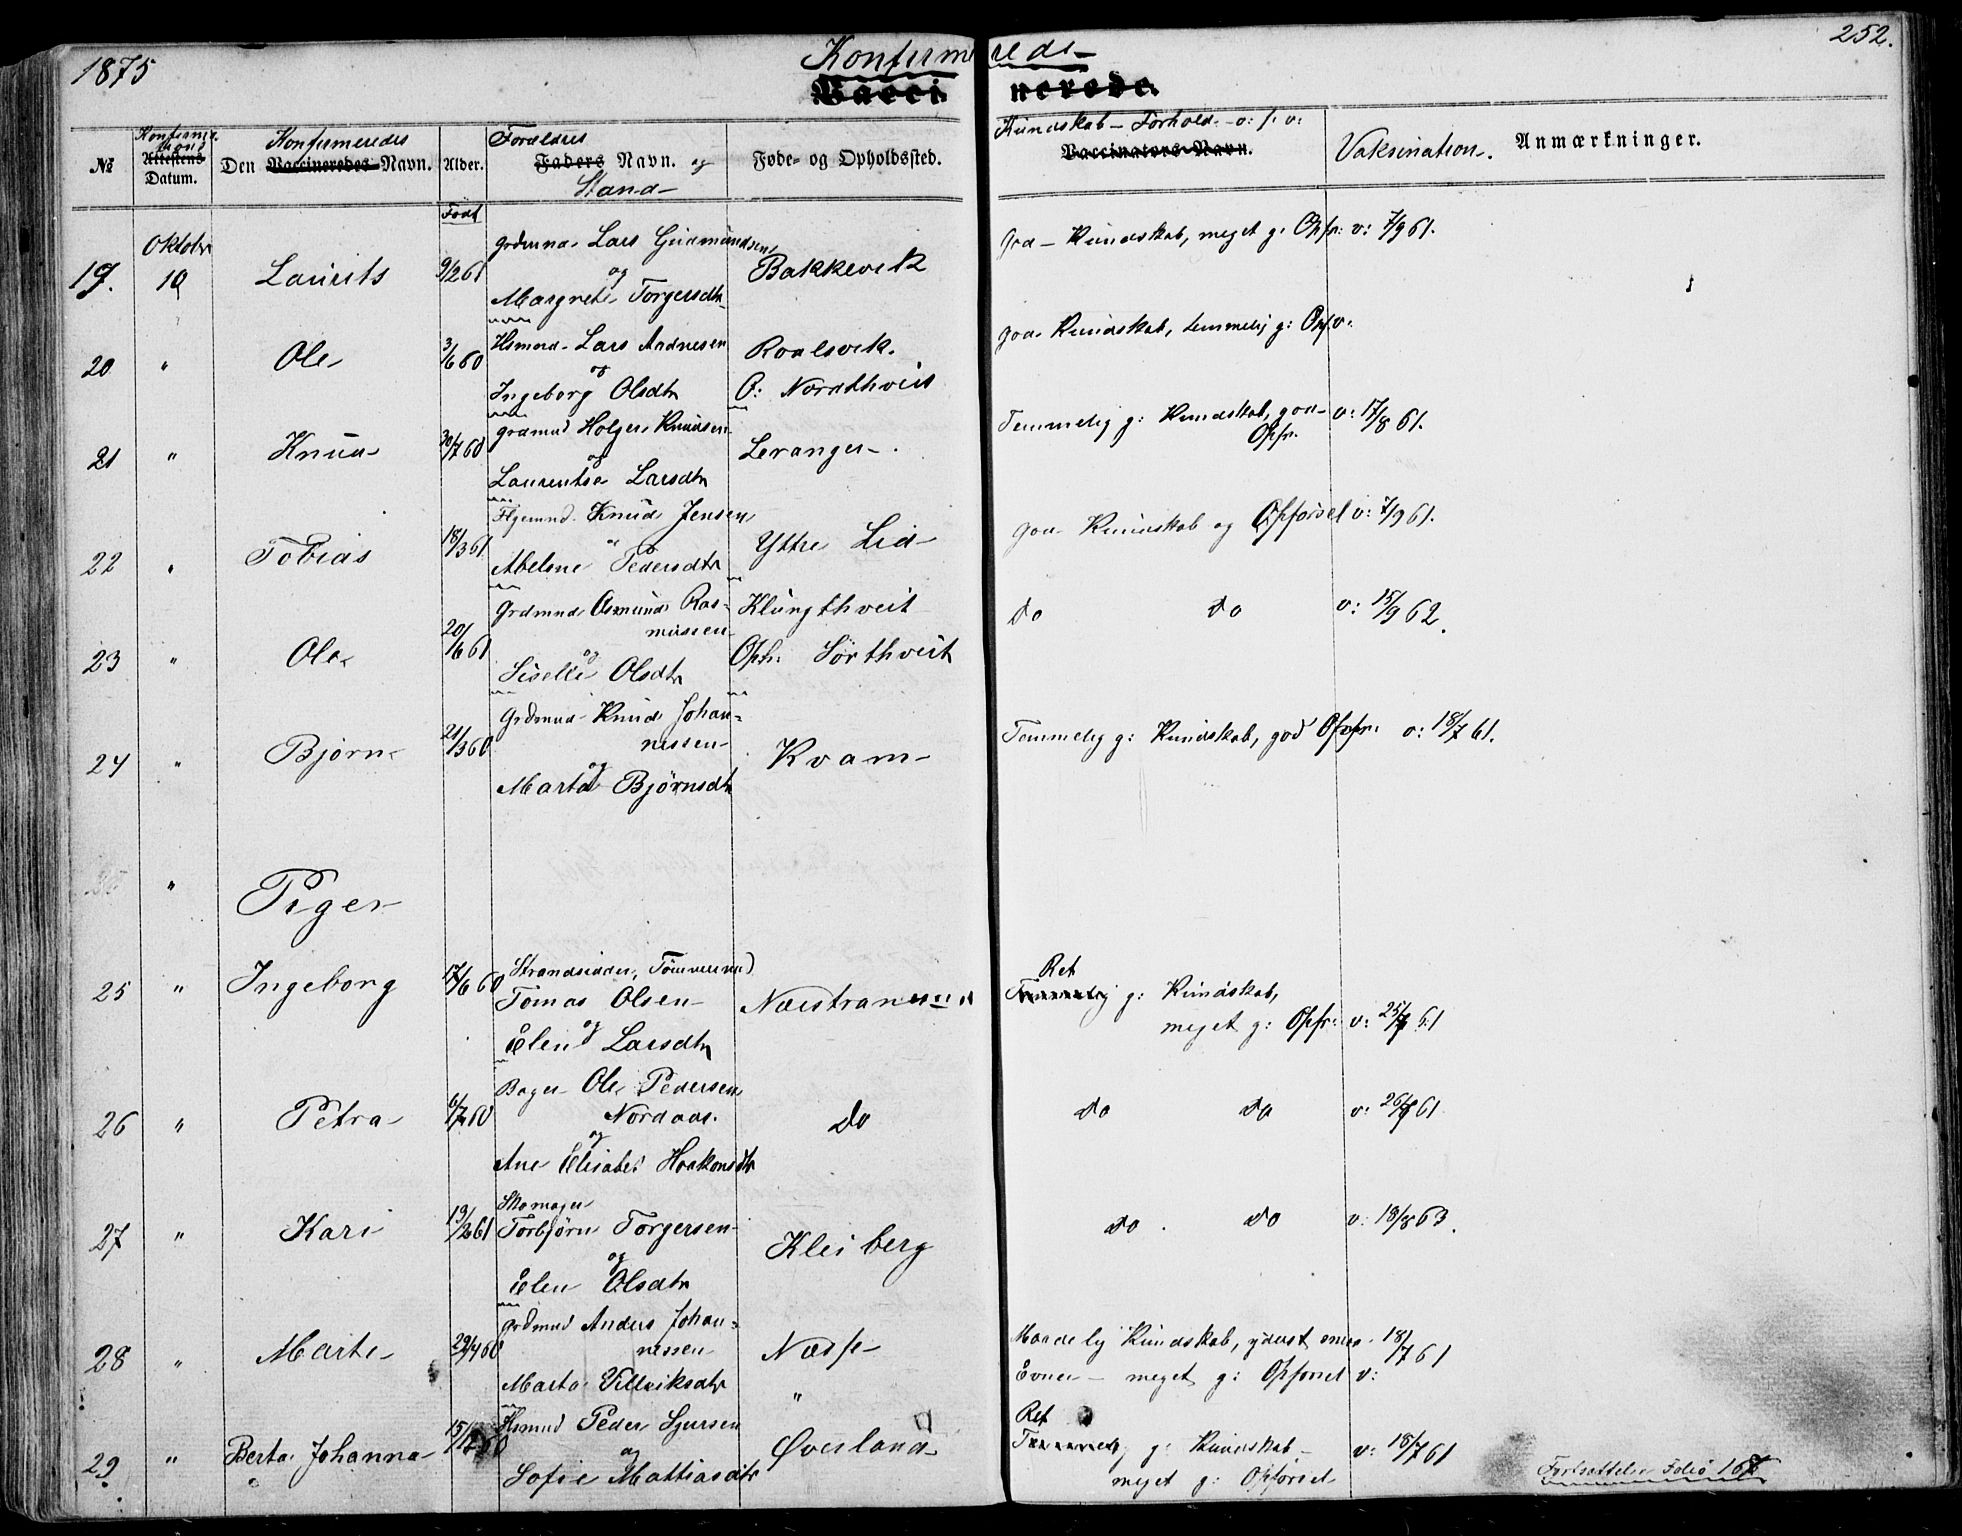 1875
252.
Konfirmerede
Vaccinerede.
No
Konfirma-
tions
Attestens
Datum.
Konfirmeredes
Den Vaccineredes Navn.
Alder.
Forældres
Faders Navn. og
Stand
Føde- og Opholdssted.
Kundskab - Forhold - o: s: v:
Vaccinators Navn.
Vaksination.
Anmærkninger.
Født
Oktobr
19. 10 Laurits 9/2 61
Grdmnd Lars Gudmundsen
og
Margrete Torgersdtr
Bakkevik
God Kundskab, meget g: Opfr: v: 7/9 61.
20 " Ole 3/6 60
Hsmnd Lars Aadnesen
og
Ingeborg Olsdtr
Roalsvik.
O: Nordthveit
God Kundskab, temmelig g: Opf v:
21 " Knud 30/7 60
Grdmnd Holger Knudsen
og
Laurentse Larsdtr
Leranger
Temmelig g: Kundskab, god v: 17/8 61.
Opfr.
22 " Tobias 18/3 61
Knud Jensen
"
Abelone Pedersdtr
Yttre Lid
God Kundskab og Opførsel v: 7/9 61.
23 " Ole 20/6 61
Grdmnd Osmund Ras-
mussen
og
Siselle Olsdtr
Klungthveit
Oph: Sørthveit
do do v: 15/9 62.
24 " Bjørn 21/3 60
Grdmnd Knud Johan-
nessen
og
Marta Bjørnsdtr
Kvam
Temmelig g: Kundskab, god Opfr: v: 18/7 61.
" Piger
25 " Ingeborg 17/6 60
Strandsidder, Tømmermd
Tomas Olsen
og
Elen Larsdtr
Næstranden
Ret
Temmelig g: Kundskab,
meget g: Opfr: v: 25/7 61
26 " Petra 6/7 60
Bager Ole Pedersen
Nordaas.
og
Ane Elisabet Haakonsdtr
Do
do do v: 26/7 61
27 " Kari 19/2 61
Skomager
Torbjørn Torgersen
og
Elen Olsdtr
Kleiberg
do do v: 18/8 63.
28 " Marte 29/4 60
Grdmnd Anders Johan-
nessen
Marta Villiksdtr
Næsse
"
Maadelig Kundskab, yderst smaa 18/7 61
Evner - meget g: Opførsel v:
29 " Berta Johanna 15/12 60
Hsmnd Peder Sjursen
og
Sofie Mattiasdtr
Øverland
Ret
Temmelig g: Kundskab v: 18/7 61
meget g: Opførsel
Fortsættelse Folio 167